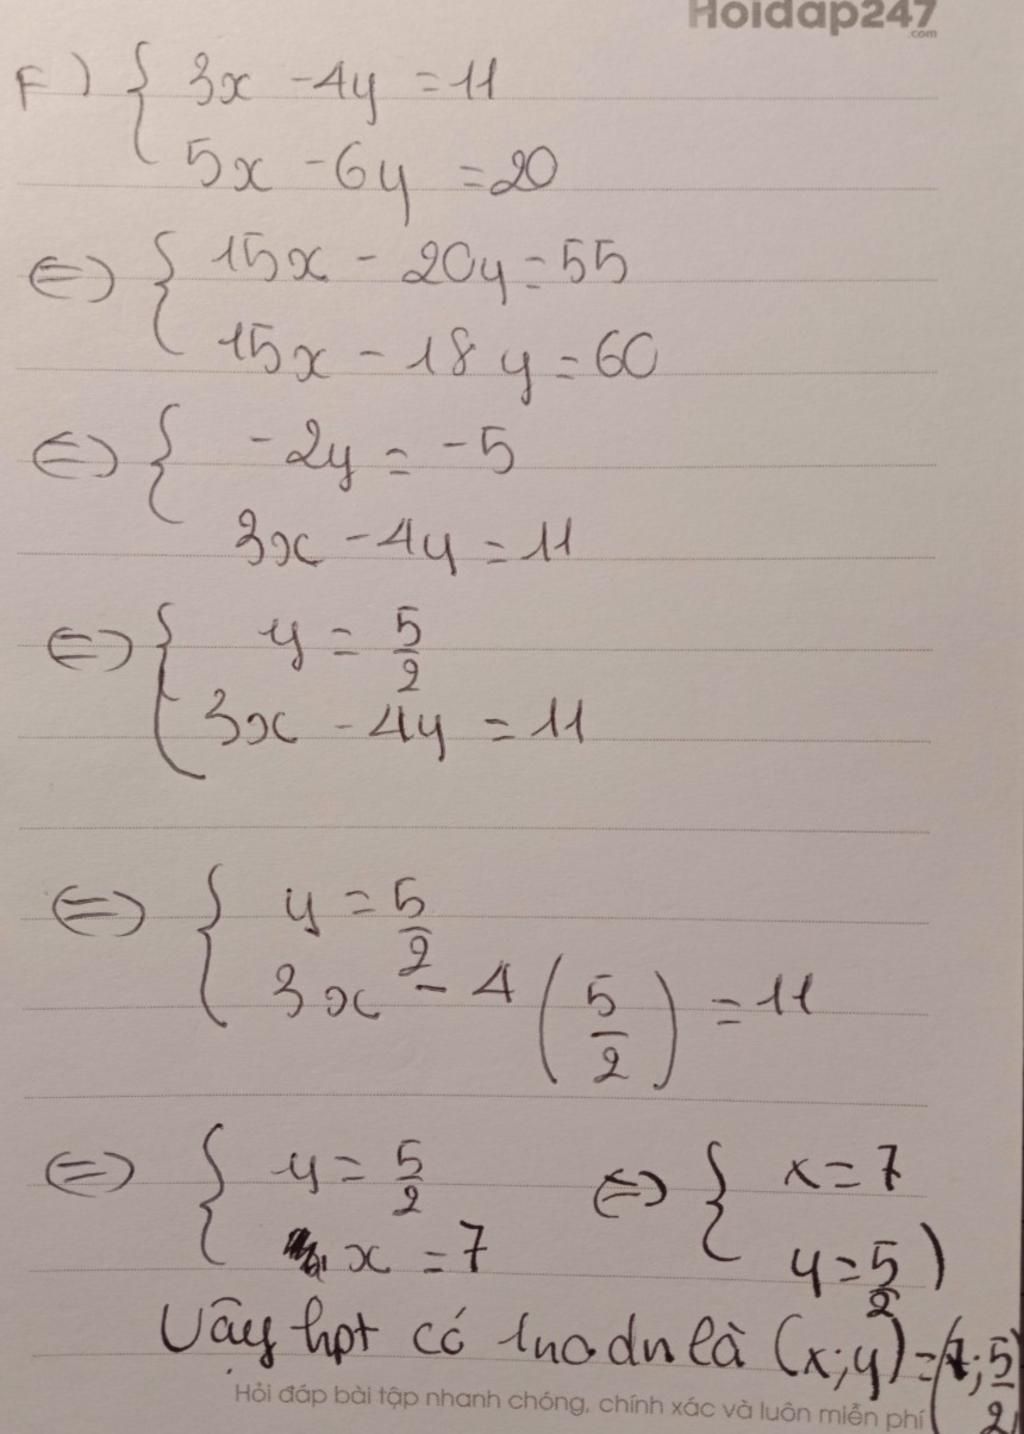 Hoidap247
.com
F) { 3x - 4y = 11
5x - 6y = 20
⇔ { 15x - 20y = 55
15x - 18y = 60
⇔ { -2y = -5
3x - 4y = 11
⇔ { y = 5/2
3x - 4y = 11
⇔ { y = 5/2
3x - 4 (5/2) = 11
⇔ { y = 5/2 ⇔ { x = 7
x = 7 y = 5/2 )
Vậy hpt có 1 no dn là (x;y) = (7; 5/2
Hỏi đáp bài tập nhanh chóng, chính xác và luôn miễn phí